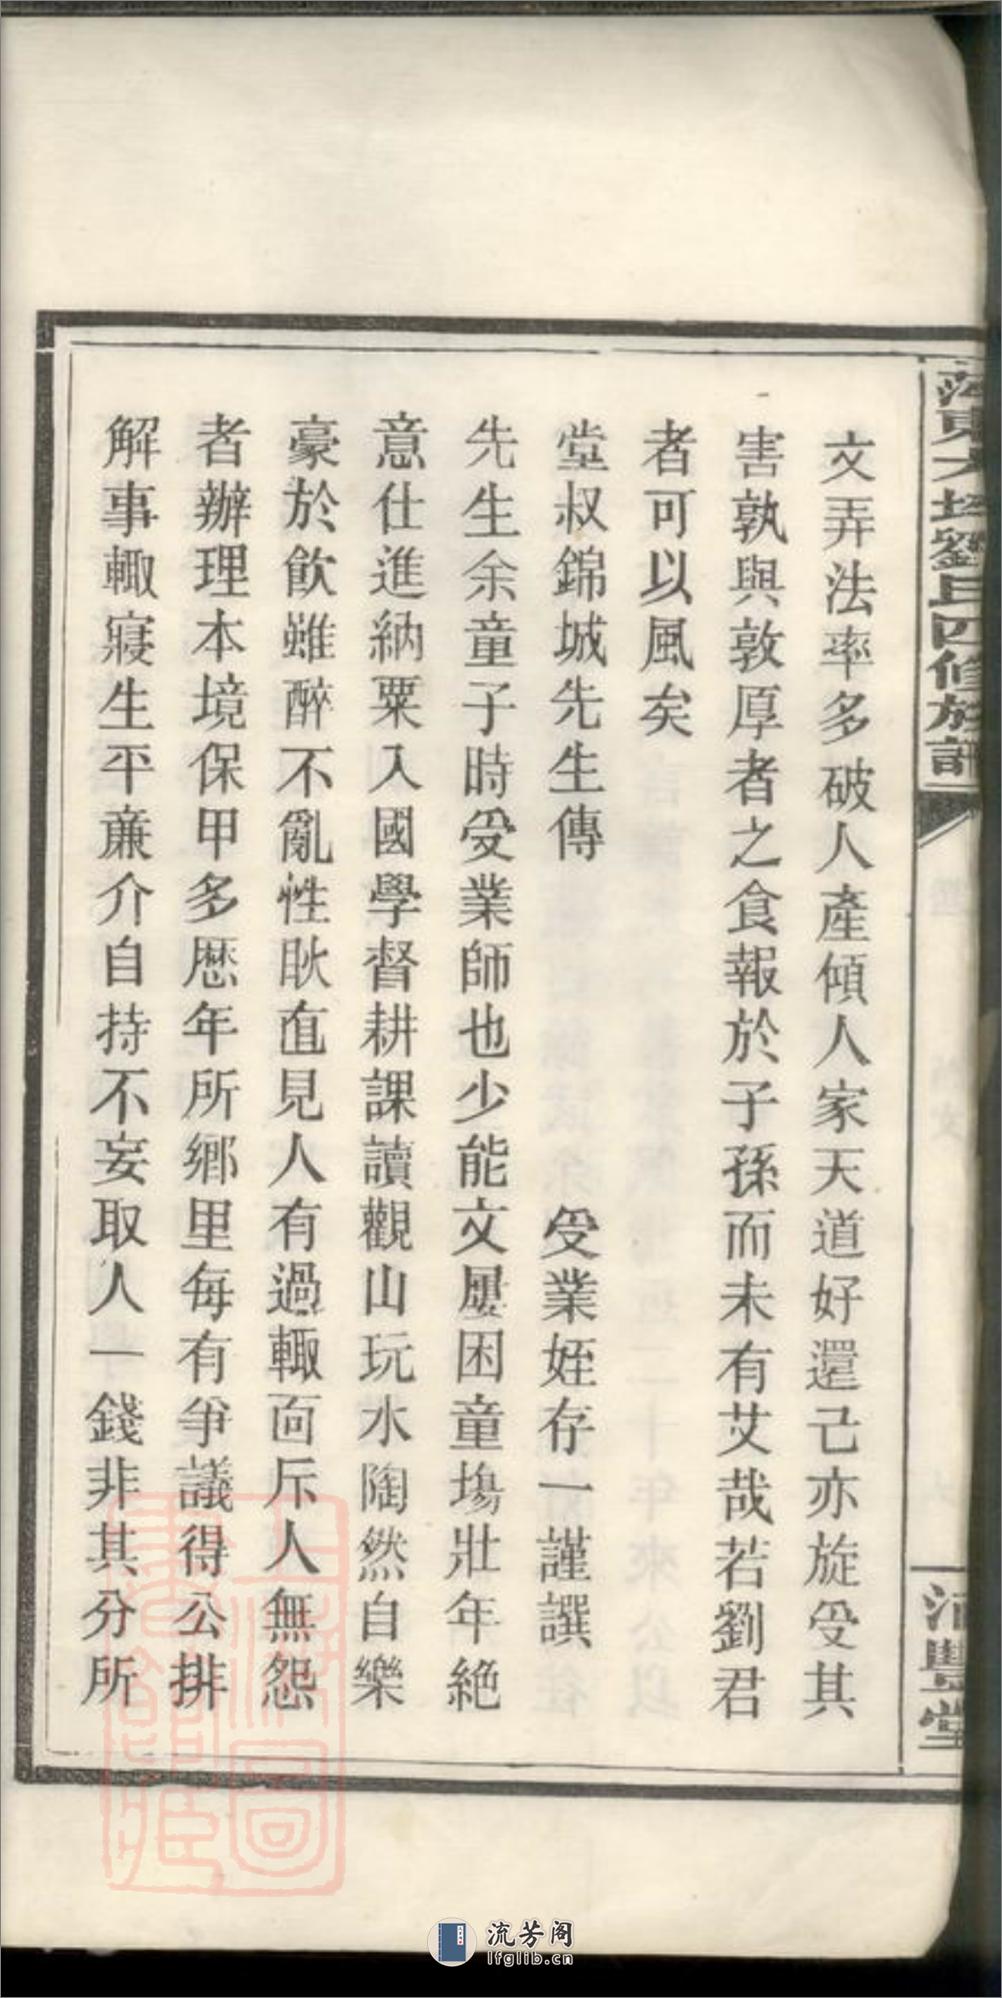 文弄法率多破人產傾人家天道好還己亦旋受其
害孰與敦厚者之食報於子孫而未有艾哉若劉君
者可以風矣
堂叔錦城先生傳　受業姪存一謹譔
先生余童子時受業師也少能文屢困童塲壯年絕
意仕進納粟入國學督耕課讀觀山玩水陶然自樂
豪於飲雖醉不亂性耿直見人有過輙面斥人無怨
者辦理本境保甲多歷年所鄉里每有爭議得公排
解事輙寢生平亷介自持不妄取人一錢非其分所
東大劉氏四修族譜
豐堂
上海圖書館藏
流芳阁
lfglib.cn